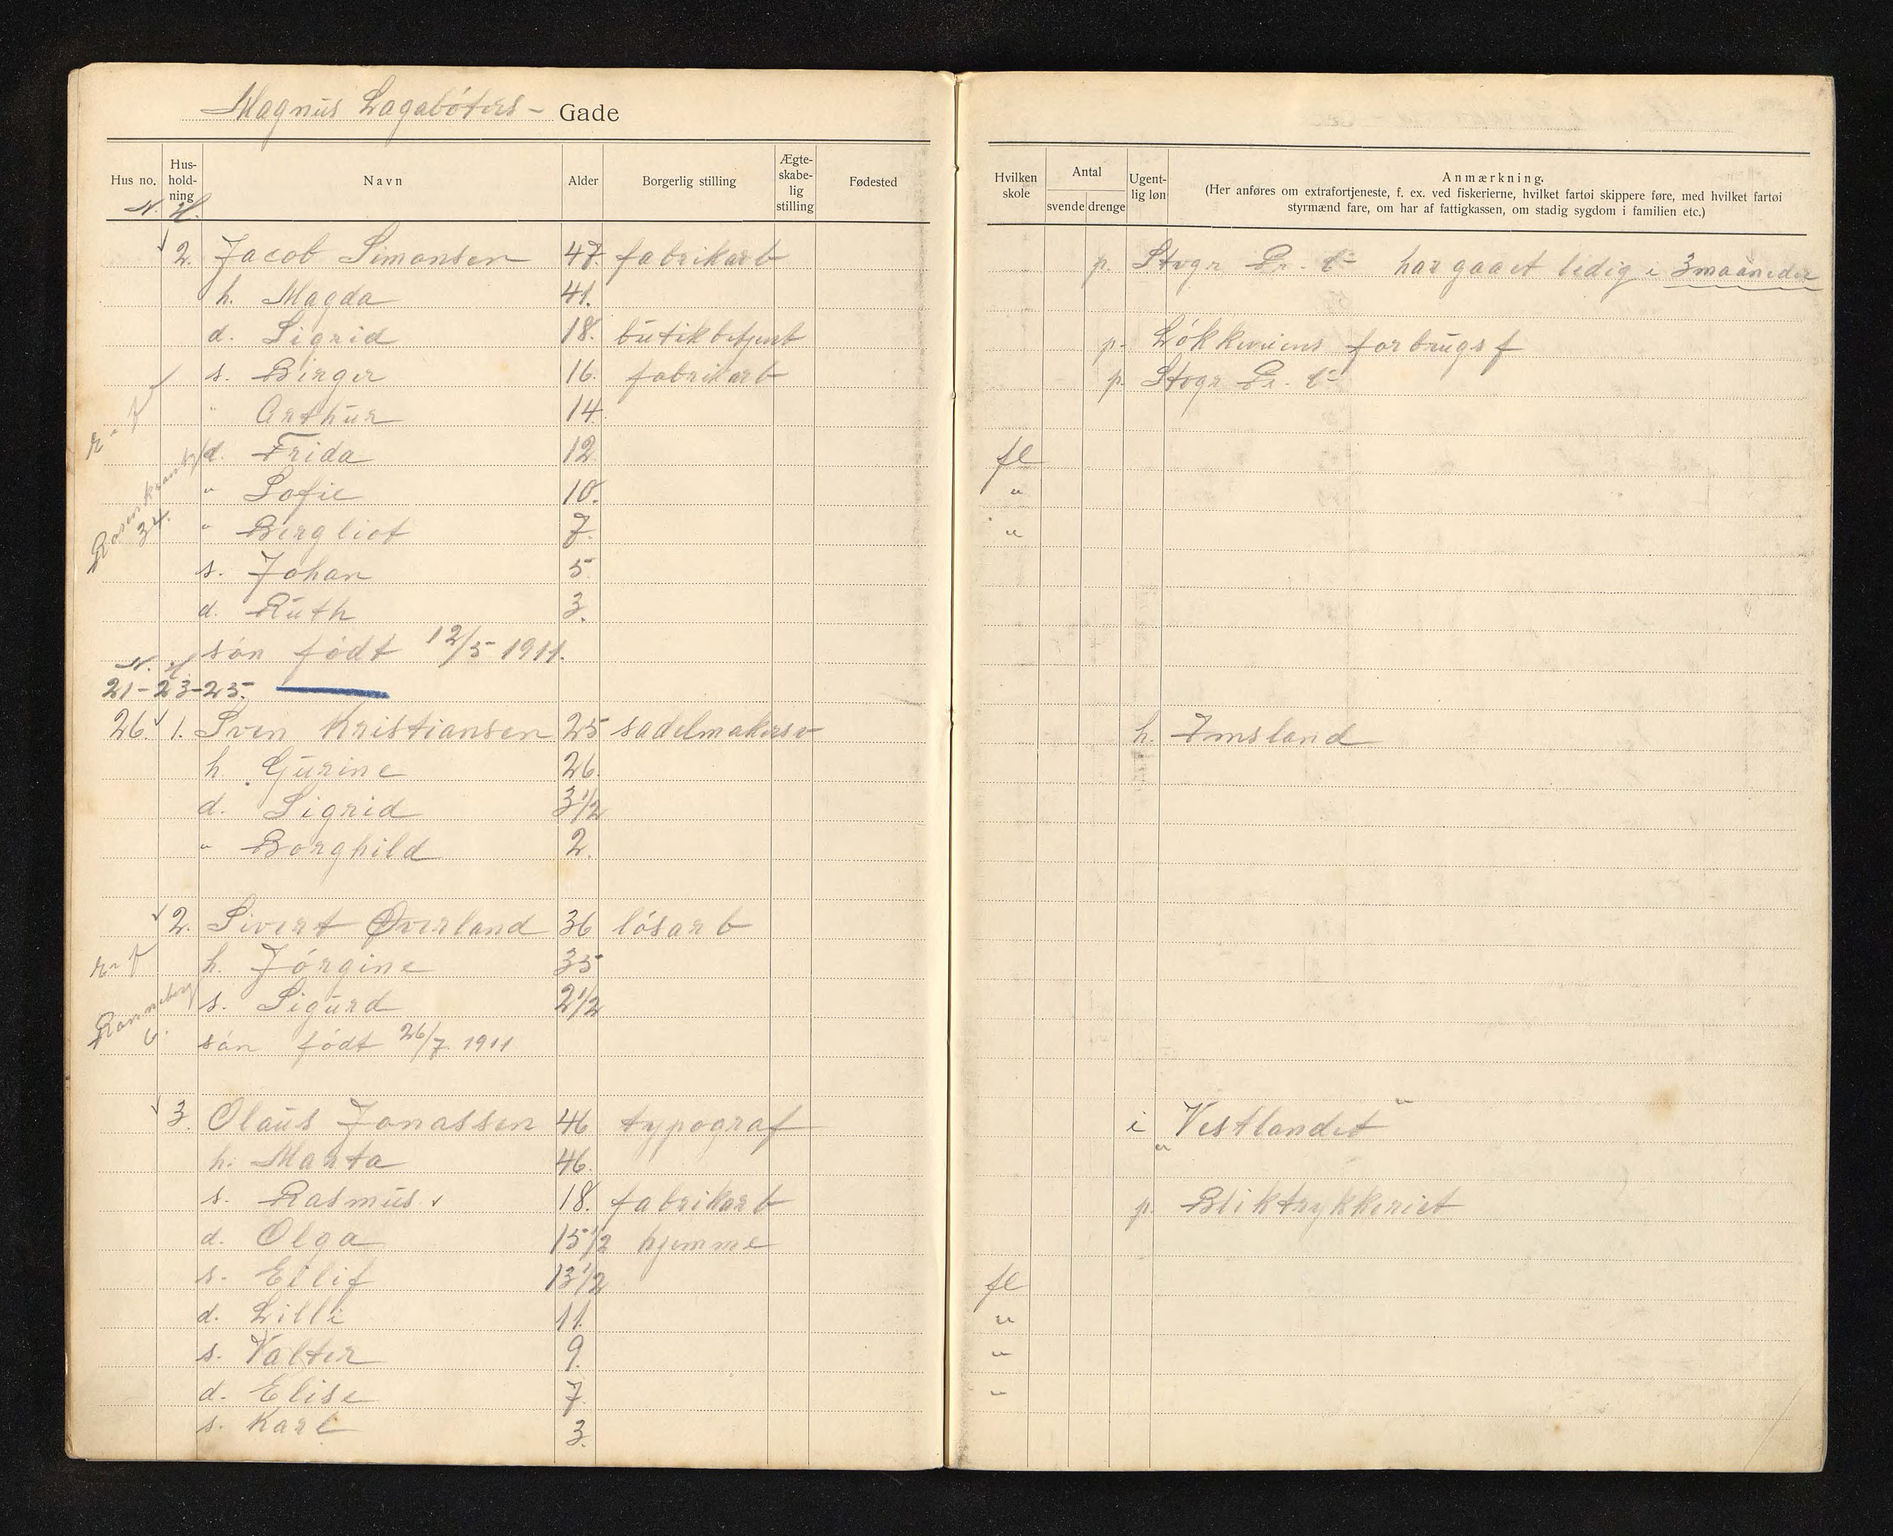 Magnus Lagabøters - Gade
Hus no. Hus-hold-ning Navn Alder Borgerlig stilling Ægte-skabe-lig stilling Fødested Hvilken skole Antal svende drenge Ugent-lig løn Anmærkning.
(Her anføres om extrafortjeneste, f. ex. ved fiskerierne, hvilket fartøi skippere føre, med hvilket fartøi
styrmænd fare, om har af fattigkassen, om stadig sygdom i familien etc.)
N. H.
2. Jacob Simonsen 47. fabrikarb p. Stvgr Pr. Co har gaaet ledig i 3 maaneder
h. Magda 41.
d. Sigrid 18. butikbetjent p. Løkkeveiens forbrugsf
s. Birger 16. fabrikarb p. Stvgr Pr. Co
" Arthur 14.
d. Frida 12 fl
" Sofie 10. "
" Bergliot 7. "
34.
s. Johan 5.
d. Ruth 3.
søn født 12/5 1911.
N. H.
21-23-25.
26. 1. Sven Kristiansen 25 sadelmakersv h. Imsland
h Gurine 26.
d. Sigrid 3 1/2
" Borghild 2.
2. Sivert Øverland 36 løsarb
h. Jørgine 35
s. Sigurd 2 1/2
6.
søn født 26/7. 1911
3. Olaus Jonassen 46 typograf i "Vestlandet"
h. Marta 46.
s. Rasmus. 18. fabrikarb p. Bliktrykkeriet
d. Olga 15 1/2 hjemme
s. Eilif 13 1/2 fl
d. Lilli 11. "
s. Valter 9. "
d. Elise 7. "
s. Karl 3.